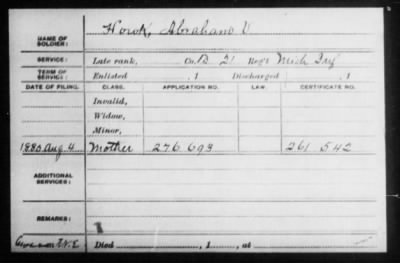 NAME OF SOLDIER: Abraham V
SERVICE: Late rank, Co. D 21 Reg't Mich Inf
TERM OF SERVICE: Enlisted , 1 Discharged , 1
DATE OF FILING. CLASS. APPLICATION NO. LAW. CERTIFICATE NO.
Invalid,
Widow,
Minor,
1880 Aug. 4 Mother 276 693 261 542
ADDITIONAL SERVICES:
REMARKS:
Died , 1 , at